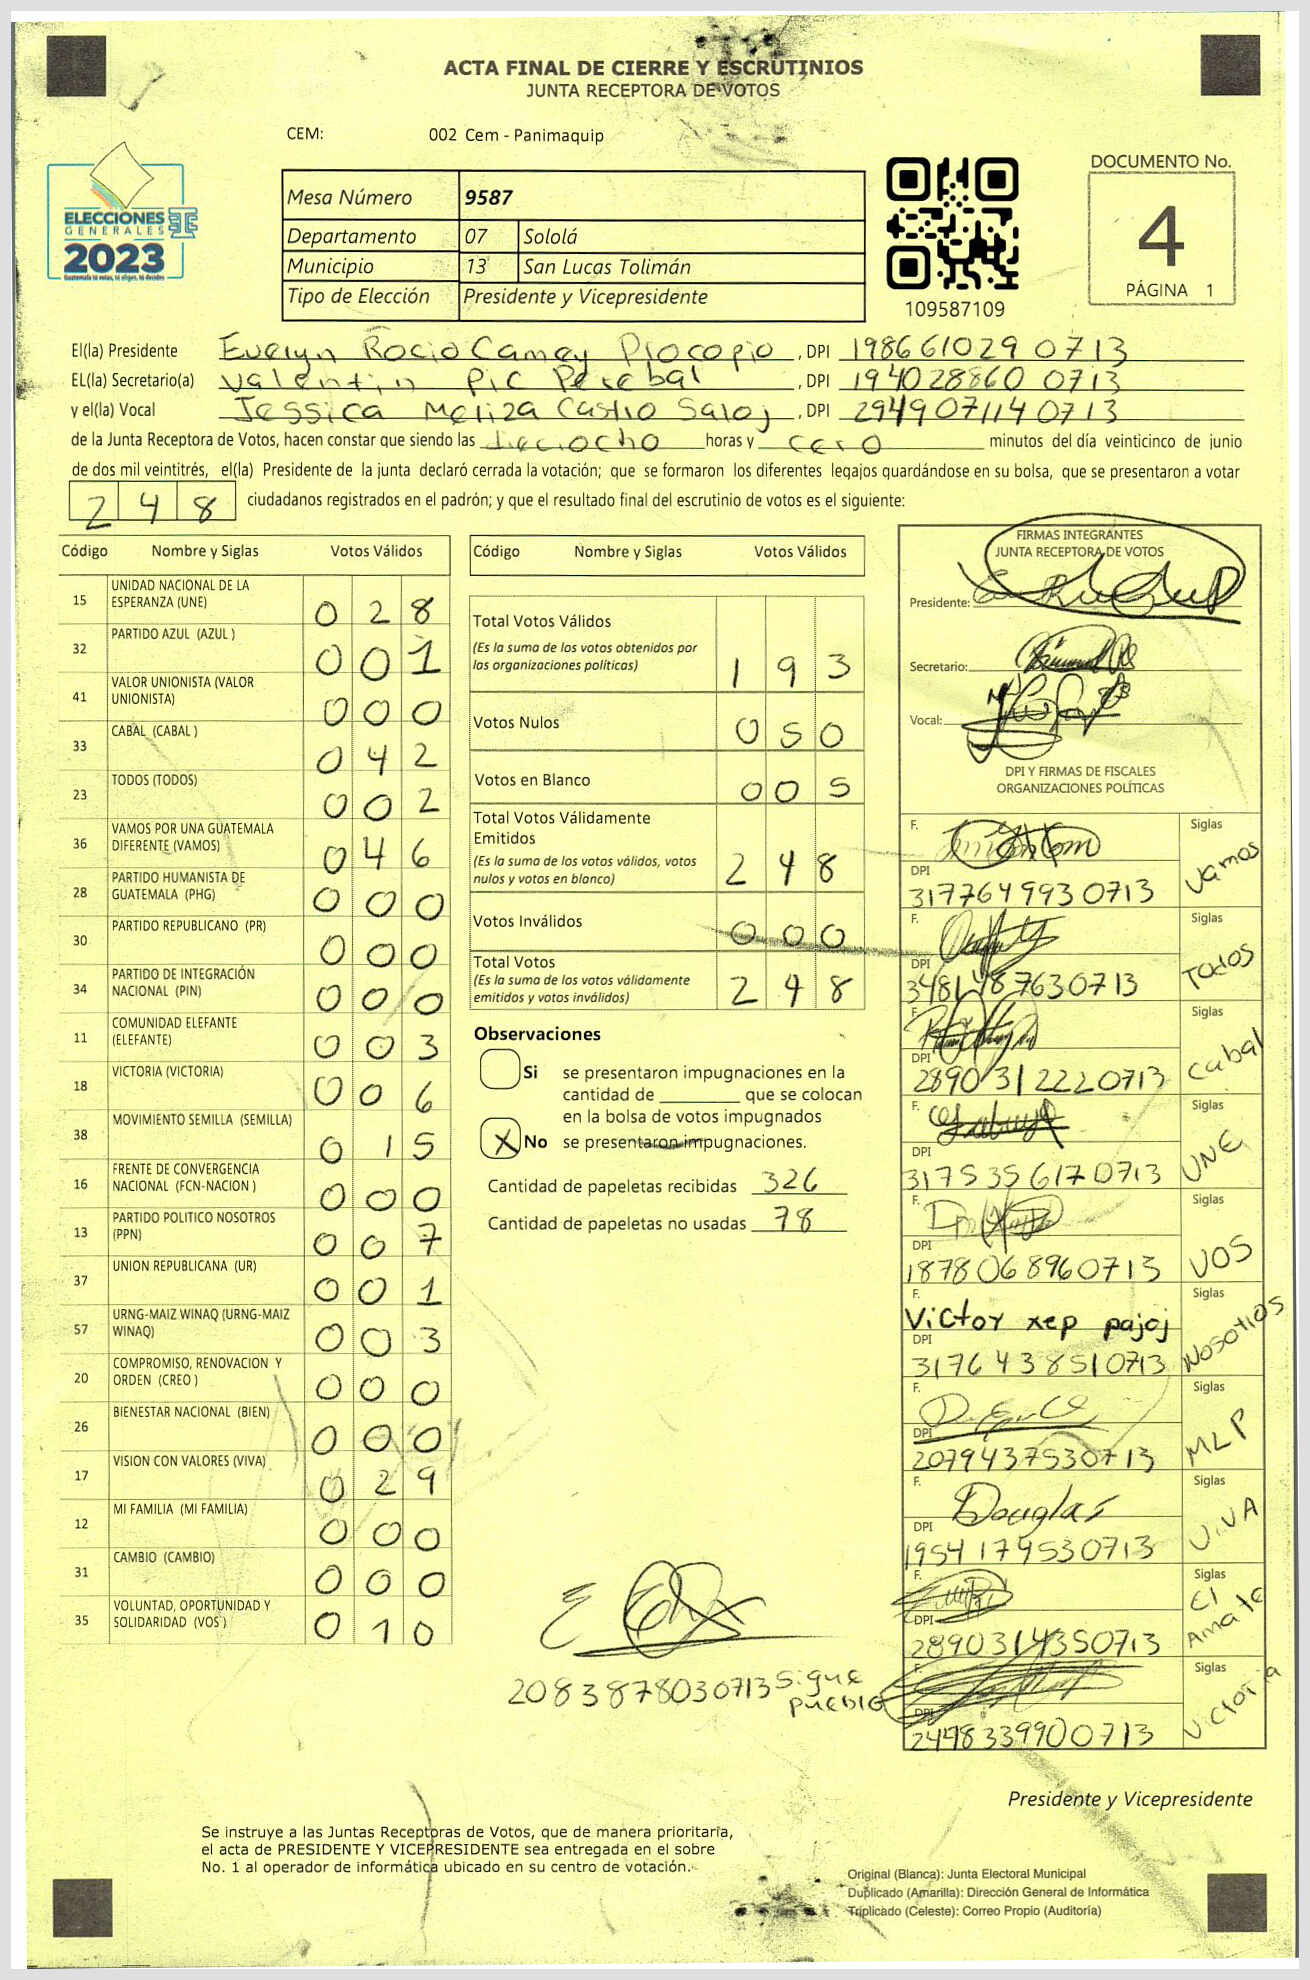 ACTA FINAL DE CIERRE Y ESCRUTINIOS
JUNTA RECEPTORA DE VOTOS
CEM: 002 Cem - Panimaquip
ELECCIONES
GENERALES
2023
Guatemala tú votas, tú eliges, tú decides
Mesa Número 9587
Departamento 07 Sololá
Municipio 13 San Lucas Tolimán
Tipo de Elección Presidente y Vicepresidente
109587109
DOCUMENTO No.
4
PÁGINA 1
El(la) Presidente Evelyn Rocio Camey Procopio , DPI 198661029 0713
EL(la) Secretario(a) Valentin Pic Perebal , DPI 194028860 0713
y el(la) Vocal Jessica Meliza Castro Saloj , DPI 294907114 0713
de la Junta Receptora de Votos, hacen constar que siendo las dieciocho horas y cero minutos del día veinticinco de junio
de dos mil veintitrés, el(la) Presidente de la junta declaró cerrada la votación; que se formaron los diferentes legajos guardándose en su bolsa, que se presentaron a votar
248 ciudadanos registrados en el padrón; y que el resultado final del escrutinio de votos es el siguiente:
Código Nombre y Siglas Votos Válidos
15 UNIDAD NACIONAL DE LA ESPERANZA (UNE) 028
32 PARTIDO AZUL (AZUL ) 001
41 VALOR UNIONISTA (VALOR UNIONISTA) 000
33 CABAL (CABAL ) 042
23 TODOS (TODOS) 002
36 VAMOS POR UNA GUATEMALA DIFERENTE (VAMOS) 046
28 PARTIDO HUMANISTA DE GUATEMALA (PHG) 000
30 PARTIDO REPUBLICANO (PR) 000
34 PARTIDO DE INTEGRACIÓN NACIONAL (PIN) 000
11 COMUNIDAD ELEFANTE (ELEFANTE) 003
18 VICTORIA (VICTORIA) 006
38 MOVIMIENTO SEMILLA (SEMILLA) 015
16 FRENTE DE CONVERGENCIA NACIONAL (FCN-NACION ) 000
13 PARTIDO POLITICO NOSOTROS (PPN) 007
37 UNION REPUBLICANA (UR) 001
57 URNG-MAIZ WINAQ (URNG-MAIZ WINAQ) 003
20 COMPROMISO, RENOVACION Y ORDEN (CREO ) 000
26 BIENESTAR NACIONAL (BIEN) 000
17 VISION CON VALORES (VIVA) 029
12 MI FAMILIA (MI FAMILIA) 000
31 CAMBIO (CAMBIO) 000
35 VOLUNTAD, OPORTUNIDAD Y SOLIDARIDAD (VOS ) 010
Código Nombre y Siglas Votos Válidos
Total Votos Válidos 193
(Es la suma de los votos obtenidos por
las organizaciones políticas)
Votos Nulos 050
Votos en Blanco 005
Total Votos Válidamente
Emitidos 248
(Es la suma de los votos válidos, votos
nulos y votos en blanco)
Votos Inválidos 000
Total Votos 248
(Es la suma de los votos válidamente
emitidos y votos inválidos)
Observaciones
Si se presentaron impugnaciones en la
cantidad de ________ que se colocan
en la bolsa de votos impugnados
X No se presentaron impugnaciones.
Cantidad de papeletas recibidas 326
Cantidad de papeletas no usadas 78
2083878030713 Sigue
pueblo
FIRMAS INTEGRANTES
JUNTA RECEPTORA DE VOTOS
Presidente:
Secretario:
Vocal:
DPI Y FIRMAS DE FISCALES
ORGANIZACIONES POLÍTICAS
F. Siglas Vamos
DPI 3177649930713
F. Siglas Todos
DPI 3481487630713
F. Siglas Cabal
DPI 2890312220713
F. Siglas UNE
DPI 3175356170713
F. Siglas VOS
DPI 1878068960713
F. Victor xep pajoj Siglas Nosotros
DPI 3176438510713
F. Siglas MLP
DPI 2079437530713
F. Douglas Siglas ViVA
DPI 1954179530713
F. Siglas El Amate
DPI 2890314350713
F. Siglas Victoria
DPI 2498339900713
Presidente y Vicepresidente
Se instruye a las Juntas Receptoras de Votos, que de manera prioritaria,
el acta de PRESIDENTE Y VICEPRESIDENTE sea entregada en el sobre
No. 1 al operador de informática ubicado en su centro de votación.
Original (Blanca): Junta Electoral Municipal
Duplicado (Amarilla): Dirección General de Informática
Triplicado (Celeste): Correo Propio (Auditoría)